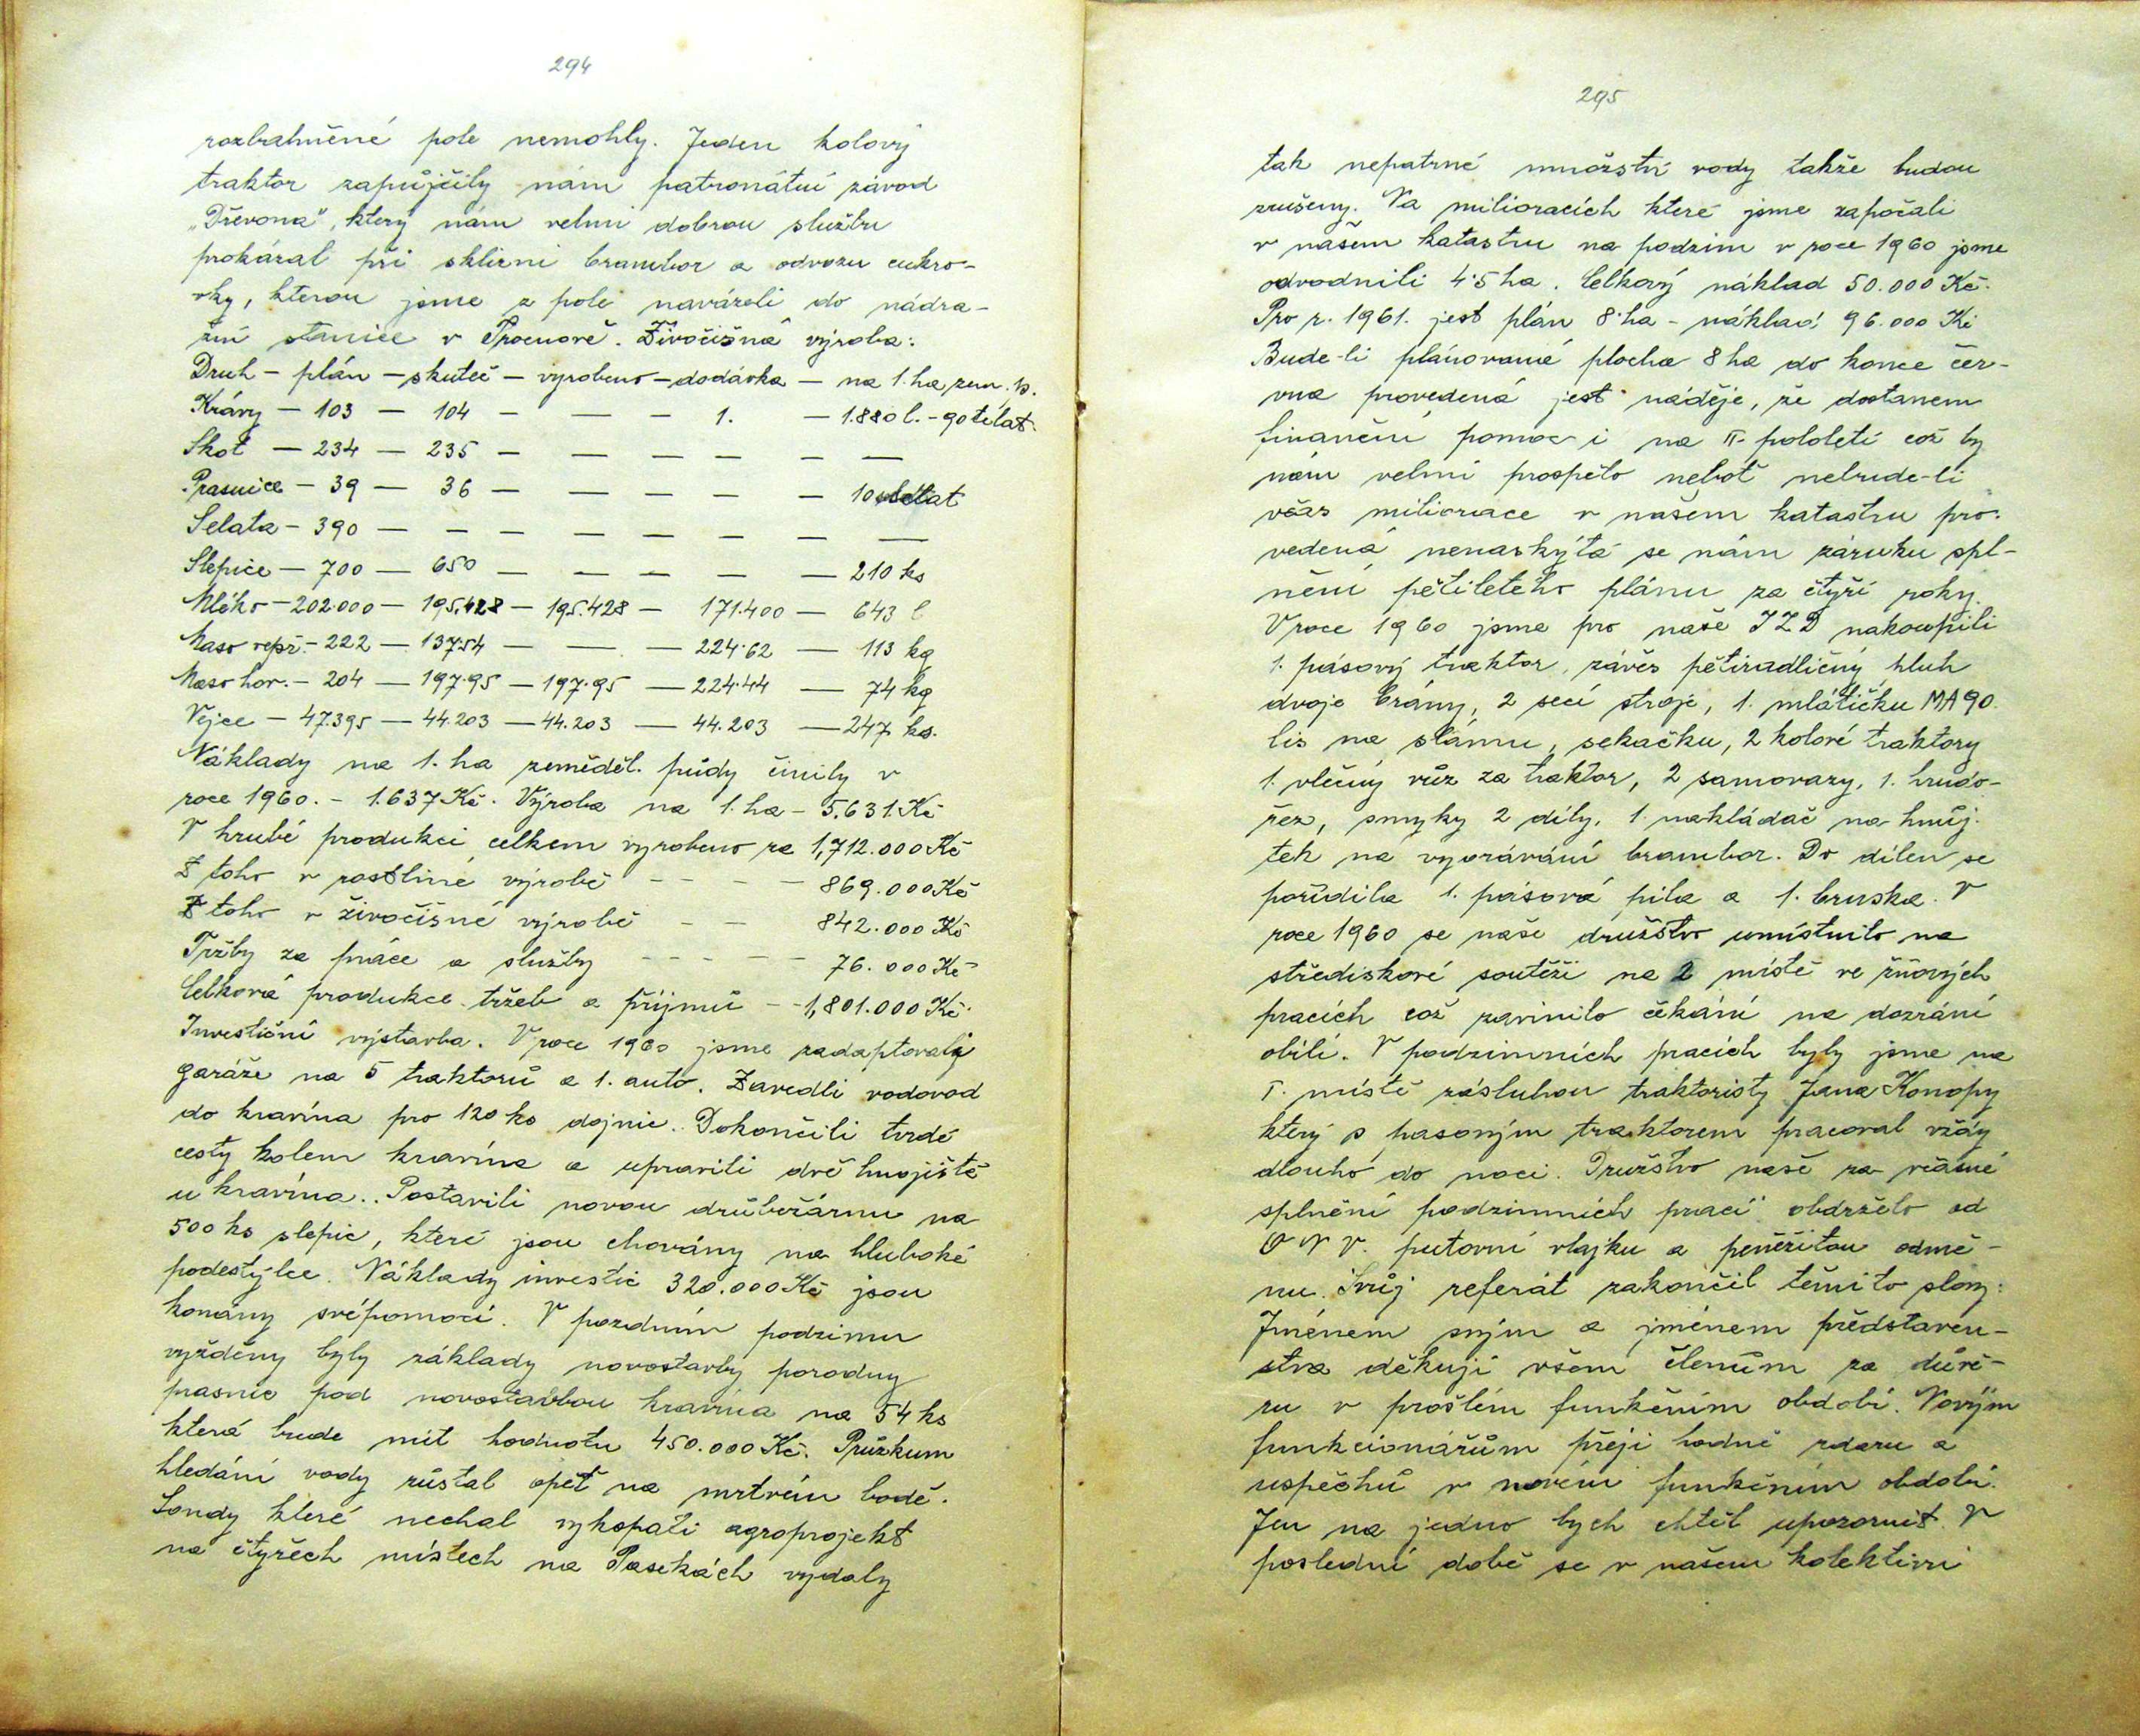 294
rozbahněné pole nemohly. Jeden kolový
traktor zapůjčily nám patronátní závod
„Dřevona", který nám velmi dobrou službu
prokázal při sklizni brambor a odvozu cukro-
vky, kterou jsme z pole naváželi do nádra-
žní stanice v Trocnově. Živočišná výroba:
Druh – plán – skuteč – vyrobeno – dodávka – na 1. ha zem. p.
Krávy – 103 – 104 – — – 1. – 1.880 l. – 90 telat.
Skot – 234 – 235 – — — — — —
Prasnice – 39 – 36 – — — — — 10 selat
Selata – 390 — — — — — — —
Slepice – 700 – 650 — — — — — 210 ks
Mléko – 202.000 – 195.428 – 195.428 – 171.400 – 643 l
Maso vepř. – 222 – 137·54 – — – 224·62 – 113 kg
Maso hov. – 204 – 197·95 – 197·95 – 224·44 – 74 kg
Vejce – 47.395 – 44.203 – 44.203 – 44.203 – 247 ks.
Náklady na 1. ha zeměděl. půdy činily v
roce 1960. – 1.637 Kč. Výroba na 1. ha – 5.631 Kč
V hrubé produkci celkem vyrobeno za 1,712.000 Kč
Z toho v rostliné výrobě – – – – 869.000 Kč
Z toho v živočišné výrobě – – 842.000 Kč
Tržby za práce a služby – – – – – 76.000 Kč
Celková produkce tržeb a příjmů – – 1,801.000 Kč.
Investiční výstavba. V roce 1960 jsme zadaptovaly
garáže na 5 traktorů a 1. auto. Zavedli vodovod
do kravína pro 120 ks dojnic. Dokončili tvrdé
cesty kolem kravína a upravili dvě hnojiště
u kravína.. Postavili novou drůbežárnu na
500 ks slepic, které jsou chovány na hluboké
podestýlce. Náklady investic 320.000 Kč jsou
konány svépomocí. V pozdním podzimu
vyžděny byly základy novostavby porodny
prasnic pod novostavbou kravína na 54 ks
která bude mít hodnotu 450.000 Kč. Průzkum
hledání vody zůstal opět na mrtvém bodě.
Sondy které nechal vykopati agroprojekt
na čtyřech místech na Pasekách vydaly
295
tak nepatrné množství vody takže budou
zrušeny. Na milioracích které jsme započali
v našem katastru na podzim v roce 1960 jsme
odvodnili 4·5 ha. Celkový náklad 50.000 Kč.
Pro r. 1961. jest plán 8·ha – náklad 96.000 Kč
Bude-li plánovaná plocha 8 ha do konce čer-
vna provedená jest naděje, že dostanem
finanční pomoc i na II. pololetí což by
nám velmi prospělo neboť nebude-li
včas miliorace v našem katastru pro-
vedená nenaskýtá se nám záruku spl-
nění pětiletého plánu za čtyři roky.
V roce 1960 jsme pro naše JZD nakoupili
1. pásový traktor, závěs pětiradličný hluh
dvoje brány, 2 secí stroje, 1. mlátičku MA 90.
lis na slámu, sekačku, 2 kolové traktory
1. vlečný vůz za traktor, 2 samovazy, 1. hrudo-
řez, smyky 2 díly, 1. nakládač na hnůj.
tek na vyorávání brambor. Do dílen se
pořídila 1. pásová pila a 1. bruska. V
roce 1960 se naše družstvo umístnilo na
střediskové soutěži na 2 místě ve žňových
pracích což zavinilo čekání na dozrání
obilí. V podzimních pracích byly jsme na
I. místě zásluhou traktoristy Jana Konopy
který s pasovým traktorem pracoval vždy
dlouho do noci. Družstvo naše za včasné
splnění podzimních prací obdrželo od
O N V. putovní vlajku a peněžitou odmě-
nu. Svůj referát zakončil těmito slovy:
Jménem svým a jménem představen-
stva děkuji všem členům za důvě-
ru v prošlém funkčním období. Novým
funkcionářům přeji hodně zdaru a
uspěchů v novém funkčním období.
Jen na jedno bych chtěl upozornit. V
poslední době se v našem kolektivu